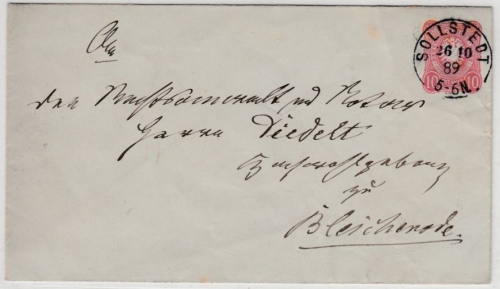 SOLLSTEDT
26 10
89
5-6N.
10 10
An
den Rechtsanwalt und Notar
Herrn Diedelt
Hochwohlgeboren
zu
Bleicherode.